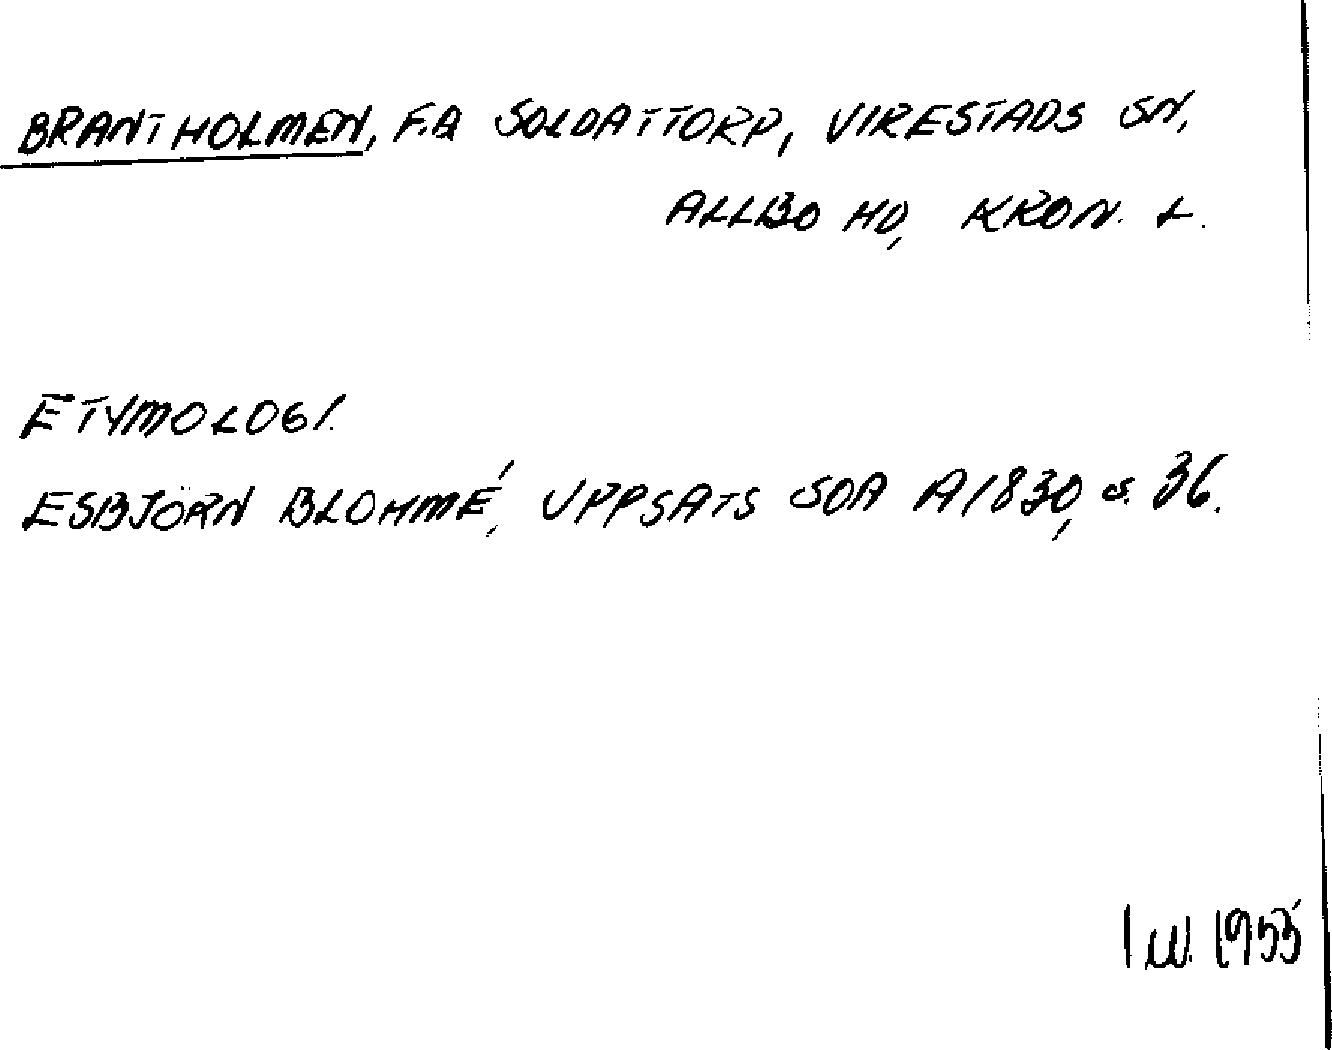 BRANTHOLMEN, F.D SOLDATTORP, VIRESTADS SN,
ALLBO HD, KRON. L.
ETYMOLOGI.
ESBJÖRN BLOHMÉ, UPPSATS SOA A1830, S. 36.
1955